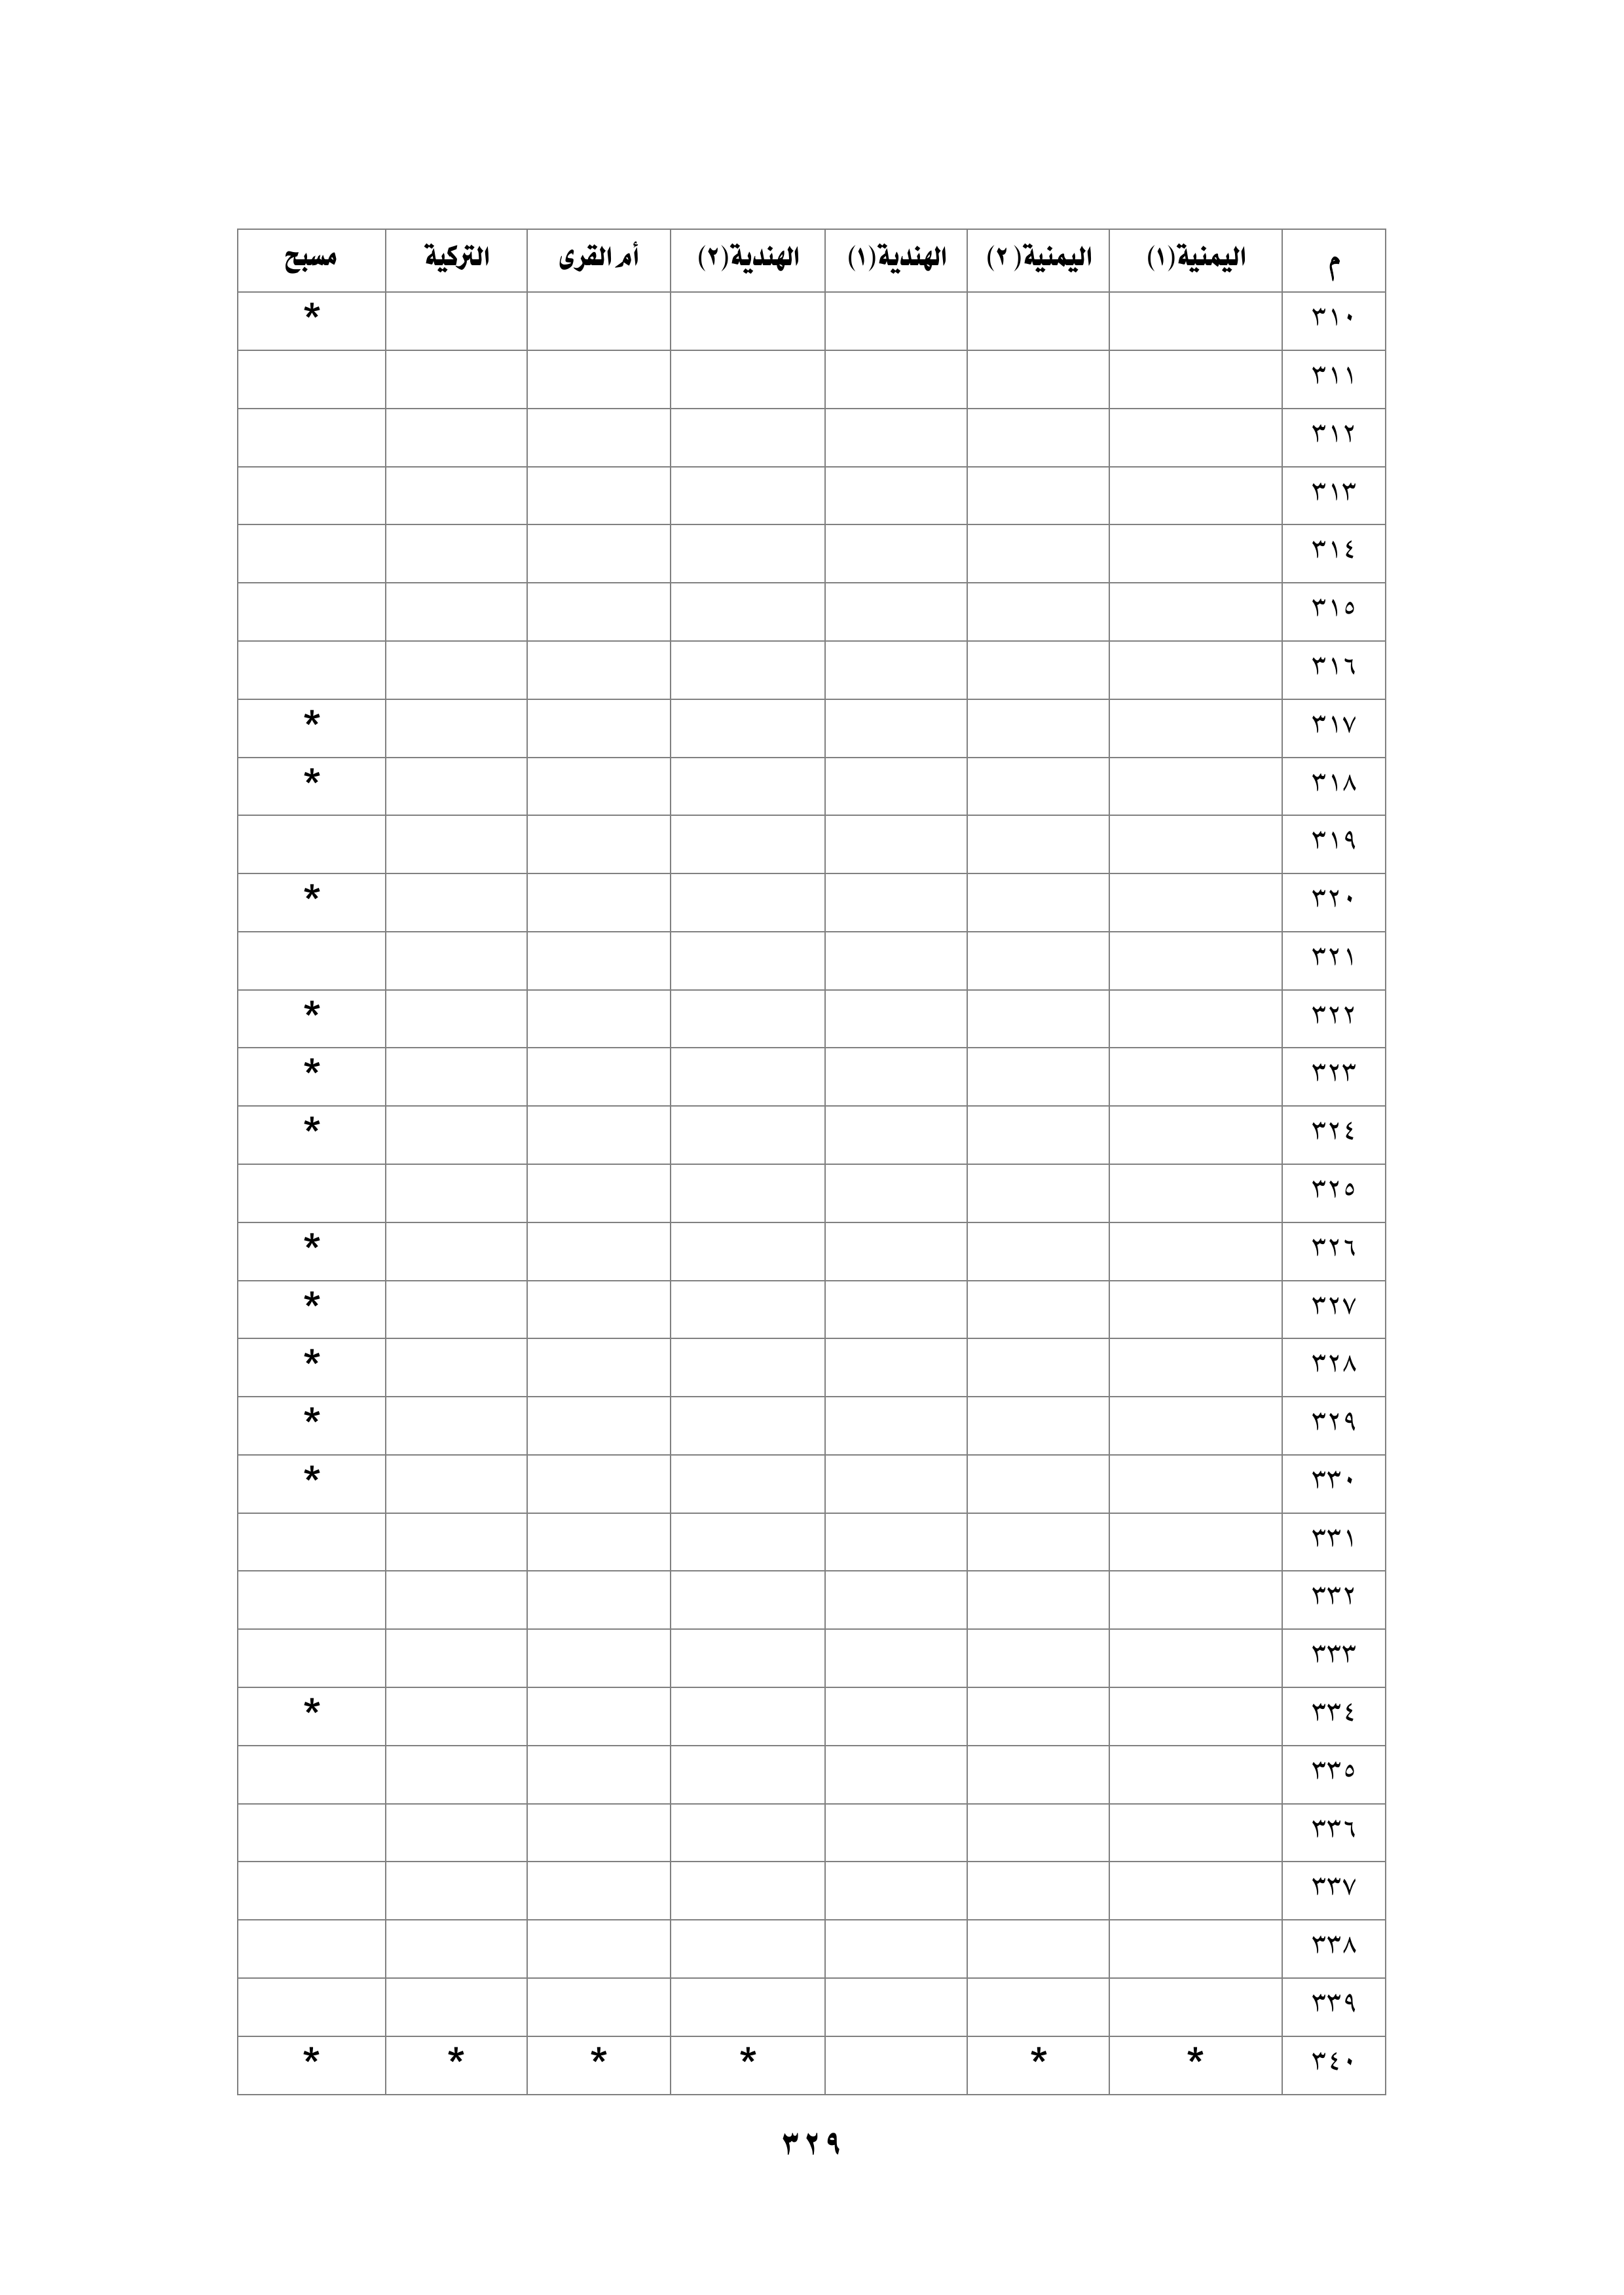 م اليمنية(١) اليمنية( ٢) الهندية(١) الهندية(٢) أم القرى التركية مسبح
٣١٠ *
٣١١
٣١٢
٣١٣
٣١٤
٣١٥
٣١٦
٣١٧ *
٣١٨ *
٣١٩
٣٢٠ *
٣٢١
٣٢٢ *
٣٢٣ *
٣٢٤ *
٣٢٥
٣٢٦ *
٣٢٧ *
٣٢٨ *
٣٢٩ *
٣٣٠ *
٣٣١
٣٣٢
٣٣٣
٣٣٤ *
٣٣٥
٣٣٦
٣٣٧
٣٣٨
٣٣٩
٣٤٠ * * * * * *
٣٢٩